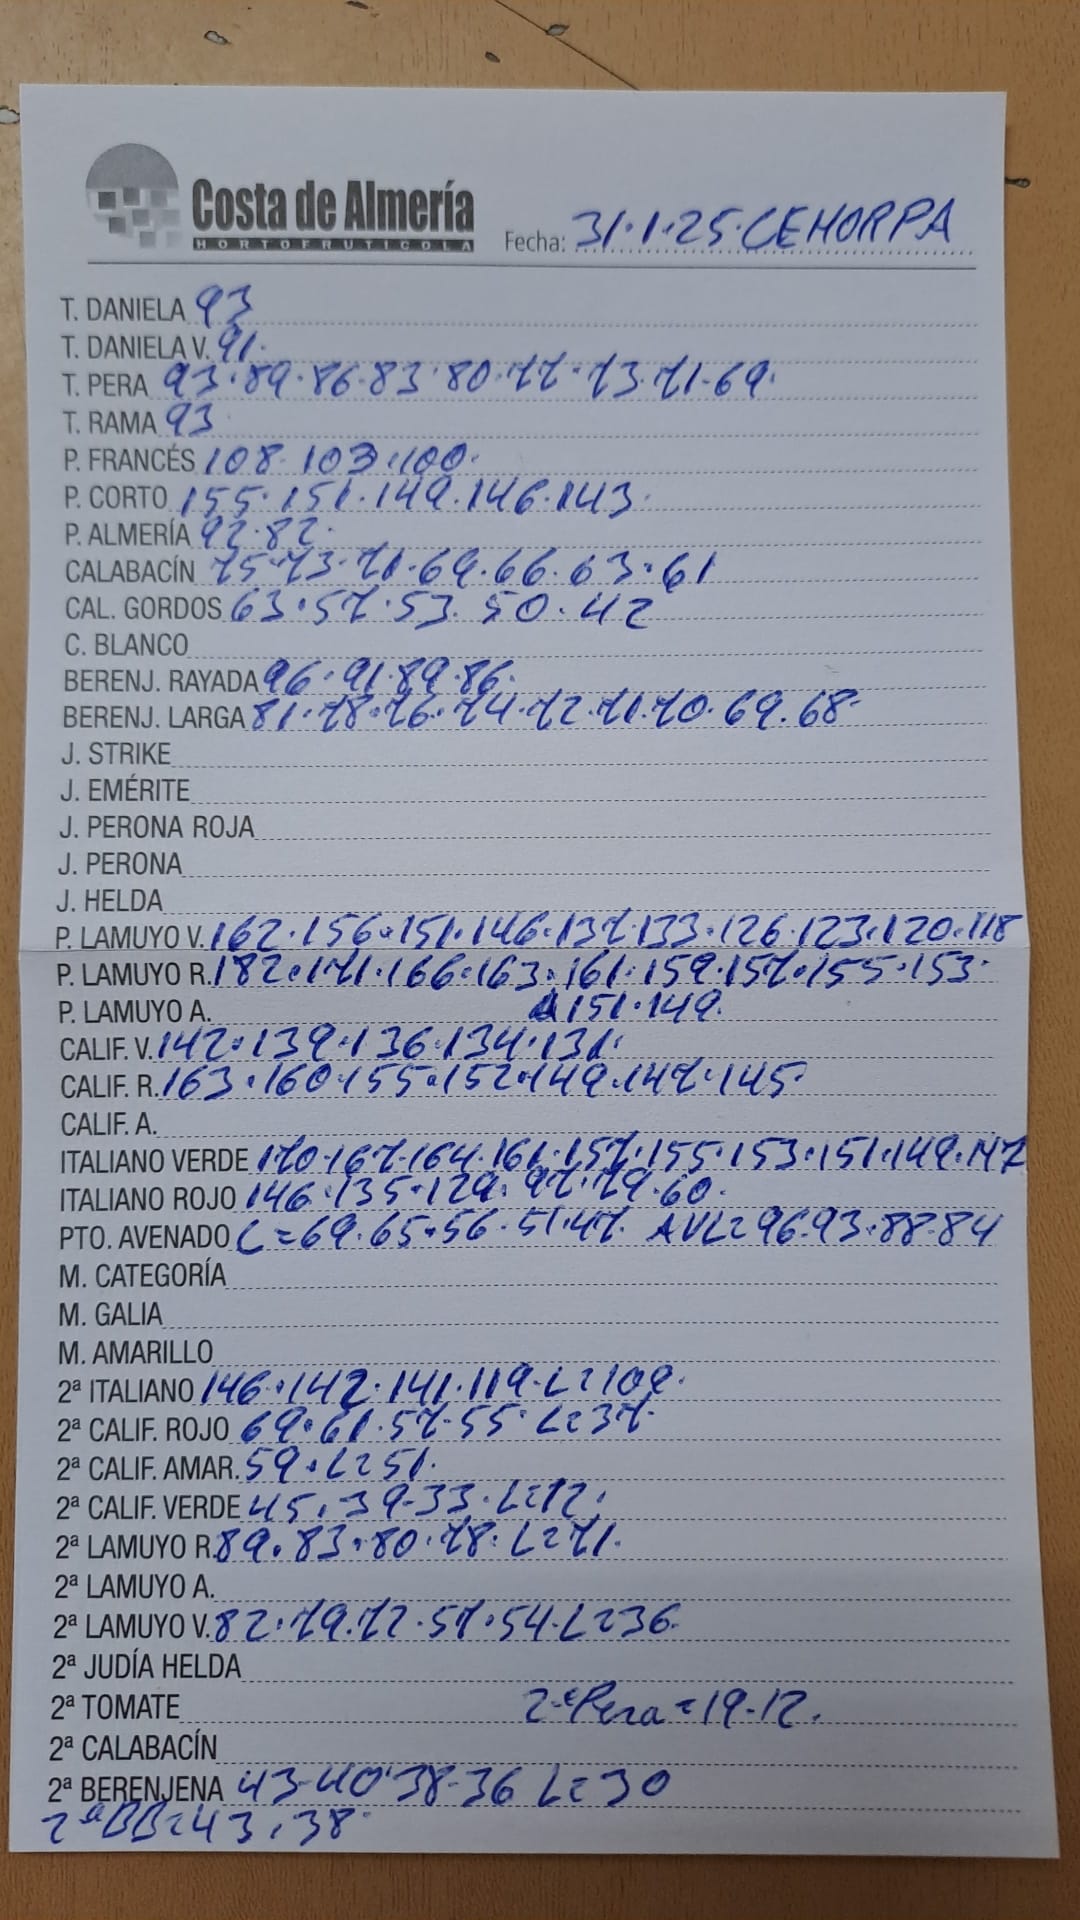 Costa de Almería
HORTOFRUTICOLA
Fecha: 31·1·25·CEHORPA
T. DANIELA 93
T. DANIELA V. 91·
T. PERA 93·89·86·83·80·77·73·71·69·
T. RAMA 93
P. FRANCÉS 108·103·100·
P. CORTO 155·151·149·146·143·
P. ALMERÍA 92·82·
CALABACÍN 75·73·71·69·66·63·61
CAL. GORDOS 63·57·53·50·42
C. BLANCO
BERENJ. RAYADA 96·91·89·86·
BERENJ. LARGA 81·78·76·74·72·71·70·69·68·
J. STRIKE
J. EMÉRITE
J. PERONA ROJA
J. PERONA
J. HELDA
P. LAMUYO V. 162·156·151·146·137·133·126·123·120·118
P. LAMUYO R. 182·171·166·163·161·159·157·155·153·
P. LAMUYO A. 151·149·
CALIF. V. 142·139·136·134·131·
CALIF. R. 163·160·155·152·149·147·145·
CALIF. A.
ITALIANO VERDE 170·167·164·161·157·155·153·151·149·147
ITALIANO ROJO 146·135·129·97·79·60·
PTO. AVENADO C=69·65·56·51·47· AVL=96·93·88·84
M. CATEGORÍA
M. GALIA
M. AMARILLO
2ª ITALIANO 146·142·141·119·L=109·
2ª CALIF. ROJO 69·61·57·55·L=37·
2ª CALIF. AMAR. 59·L=51·
2ª CALIF. VERDE 45·39-33·L=12·
2ª LAMUYO R. 89·83·80·78·L=71·
2ª LAMUYO A.
2ª LAMUYO V. 82·79·72·57·54·L=36·
2ª JUDÍA HELDA
2ª TOMATE 2ªPera=19-12.
2ª CALABACÍN
2ª BERENJENA 43-40·38-36 L=30
2ªBB=43·38·